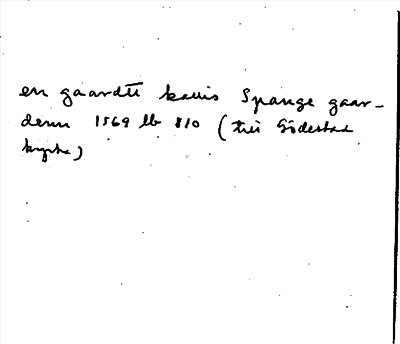 en gaardtt kallis Spange gaar-
denn 1569 lb 810 (till Södestad
kyrka)